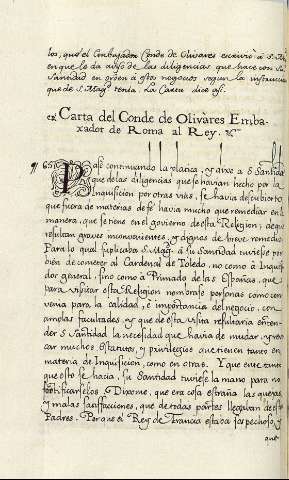 los, que el Embaxador Conde de Olivares escrivio a S. Mag.
en que le da aviso de las diligencias que hace con Su
Santidad en orden à estos negocios segun la instruccion
que de S. Mag. tenia. La Carta dice assi.
Carta del Conde de Olivares Emba-
xador de Roma al Rey. &c.
65 Passè continuando la platica, y dixe a S. Santidad
que de las diligencias que se havian hecho por la
Inquisicion por otras vias, se havia descubierto
que fuera de materias de fè havia mucho que remediar en la
manera, que se tiene en el govierno de esta Religion; de que
resultan graves inconvenientes, y dignos de breve remedio.
Para lo qual suplicaba S. Mag. à su Santidad tuviesse por
bien de cometer al Cardenal de Toledo, no como à Inquisi-
dor general, sino como a Primado de las Españas, que
para visitar esta Religion nombrase personas como con-
venia para la calidad, è importancia del negocio, con
amplas facultades, y que de esta visita resultaria enten-
der S. Santidad la necesidad que havia de mudar, y revo-
car muchos Estatutos, y privilegios que tienen tanto en
materia de Inquisicion, como en otras. Y que entretanto
que esto se hacia, su Santidad tuviese la mano para no
fortificarselos. Dixome, que era cosa estraña las quexas,
y malas satisfacciones, que de todas partes llegavan de estos
Padres. Porque el Rey de Francia estaba sospechoso, y
que